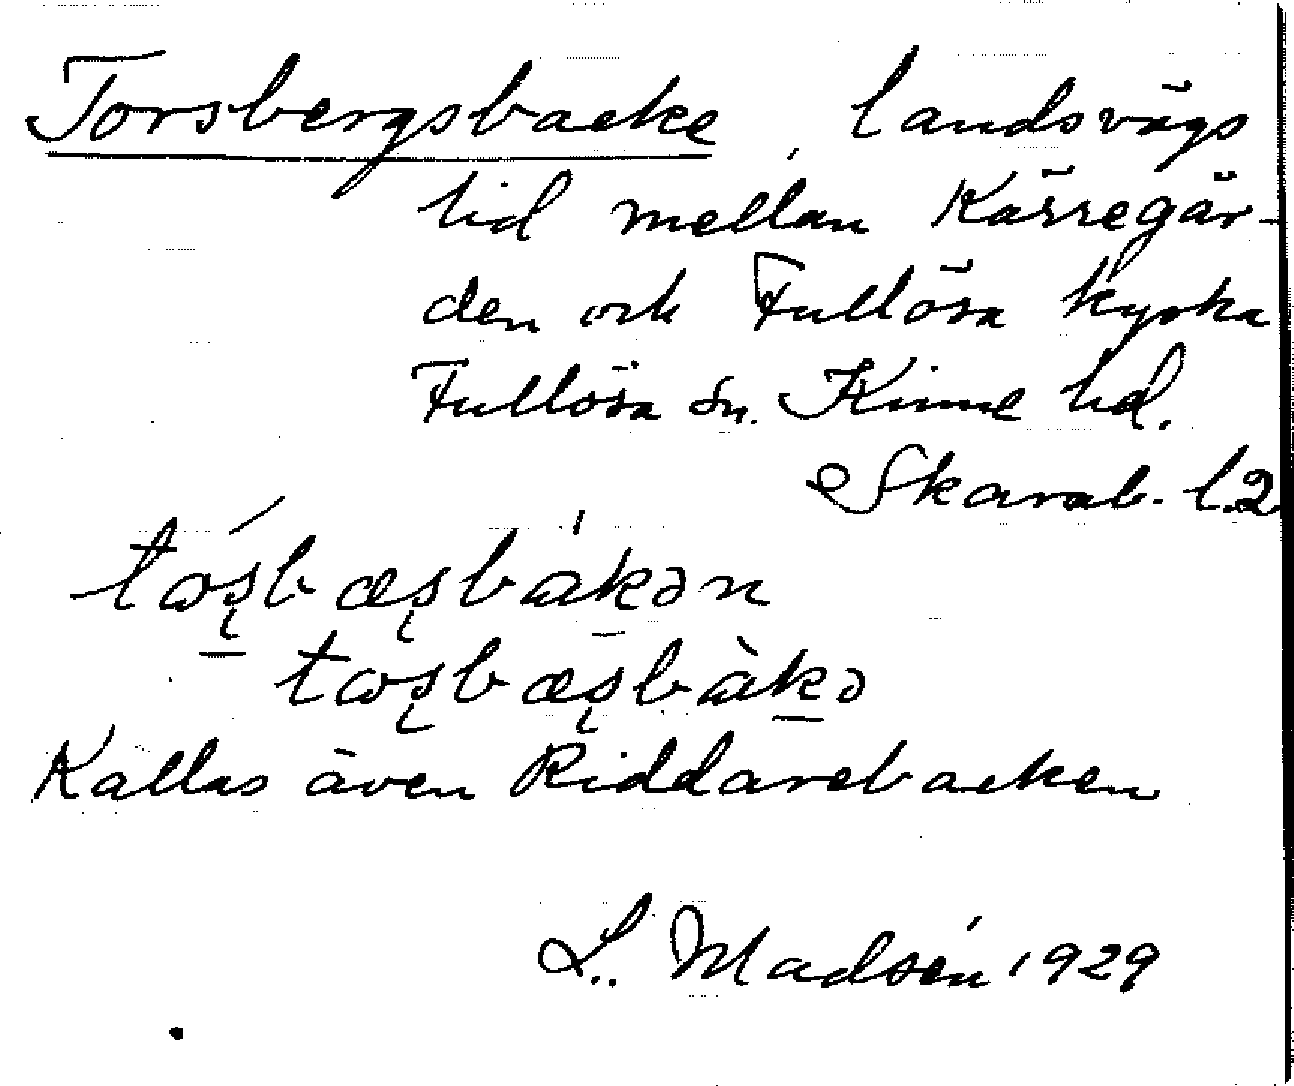 Torsbergsbacke, landsvägs
lid mellan Kärregår-
den och Fullösa kyrka
Fullösa sn. Kinne hd.
Skarab. l.2
tɷ́ʂbæʂbákən
tɷʂbæʂbàkə
Kallas även Riddarebacken
L. Madsén 1929